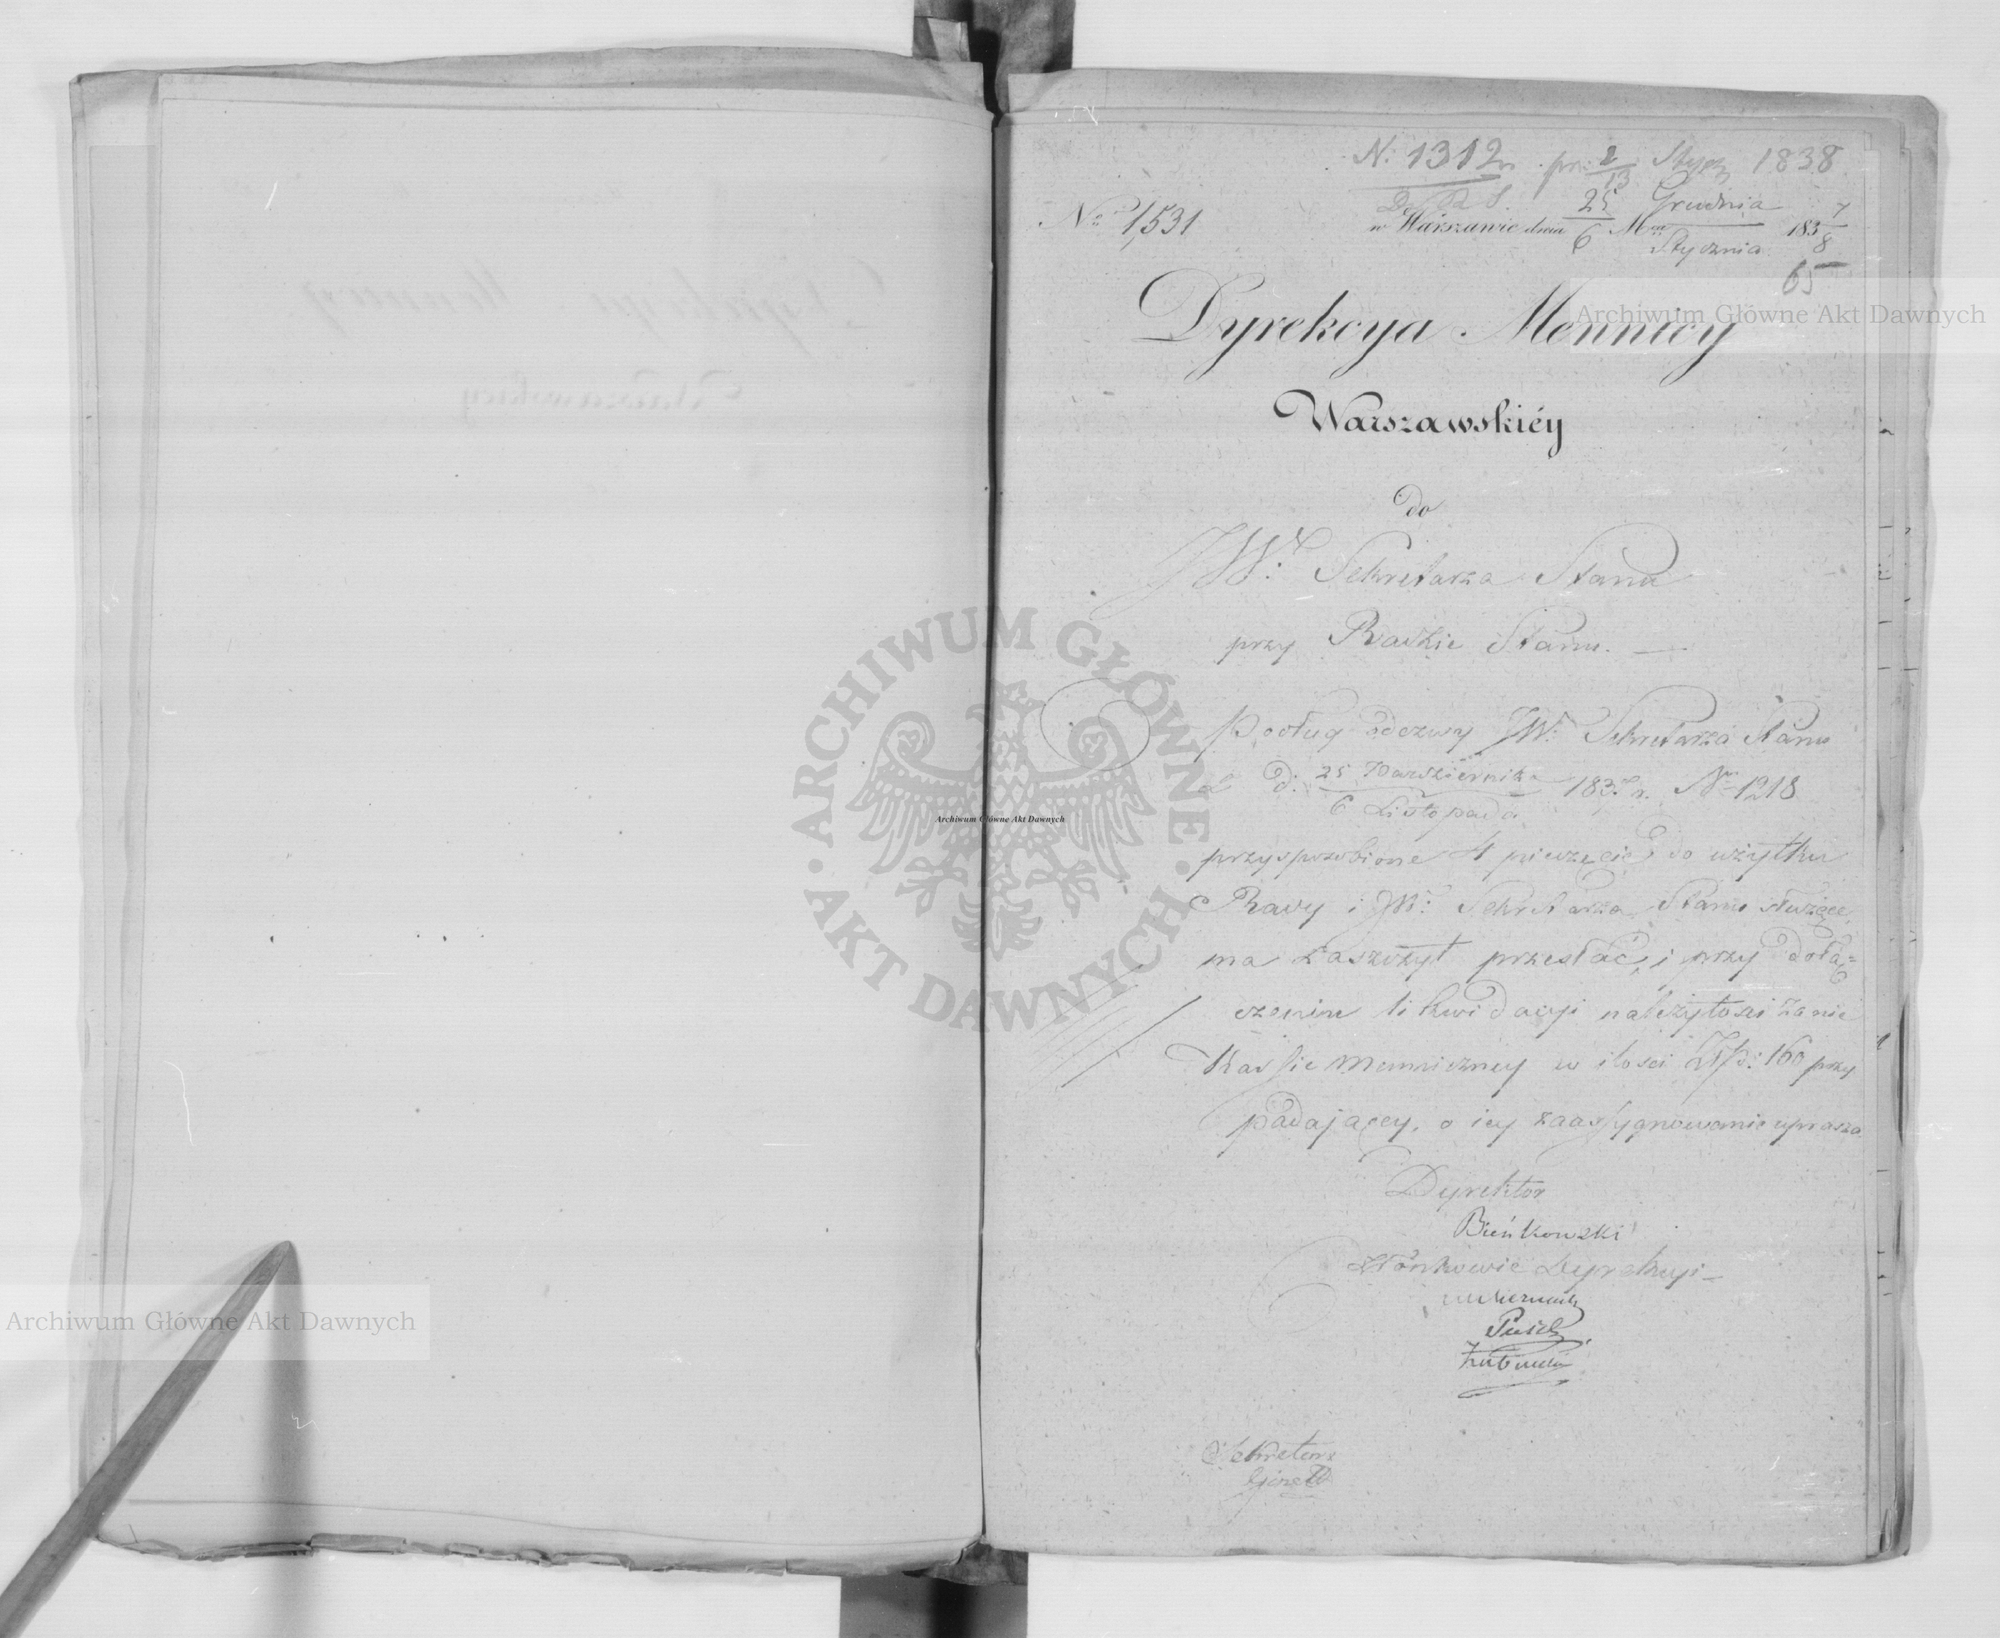 N: 1312 pr: 2/13 Stycz 1838
D. R. S.
No 1,531
w Warszawie dnia 25/6 Mca Grudnia/Stycznia 1837/8
65
Dyrekcya Mennicy
Warszawskiéy
do
JWo Sekretarza Stanu
przy Radzie Stanu. —
Podług odezwy JWo Sekretarza Stanu
z d: 25 Pazdziernika/6 Listopada 1837 r. No 1218
przysposobione 4 pieczęcie, do użytku
Rady i JWo Sekretarza Stanu służące,
ma zaszczyt przesłać, i przy dołą=
czeniu likwidacyi należytości za nie
Kassie Menniczney w ilości Złp: 160 przy
padaiącey, o iey zaassygnowanie uprasza
Dyrektor
Bieńkowski
Członkowie Dyrekcyi
Pusch
Sekretarz
Archiwum Główne Akt Dawnych
Archiwum Główne Akt Dawnych
Archiwum Główne Akt Dawnych
ARCHIWUM GŁÓWNE AKT DAWNYCH